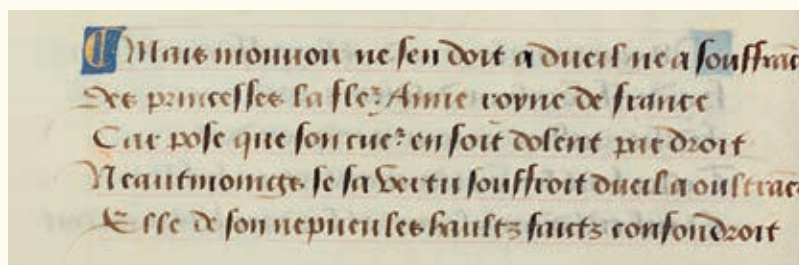 Mais mon non ne sen doit a dueil ne a souffrac
Des princesses la fle᷑ Anne royne de france
Car pose que son cue᷑ en soit dolent par droit
Neautmoings se sa vertu souffroit dueil a oultrac
Elle de son nepueu les haultz faictz confondroit